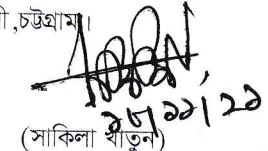 ,চট্টগ্রাম।
১৮/১১/২১
(সাকিলা খাতুন)